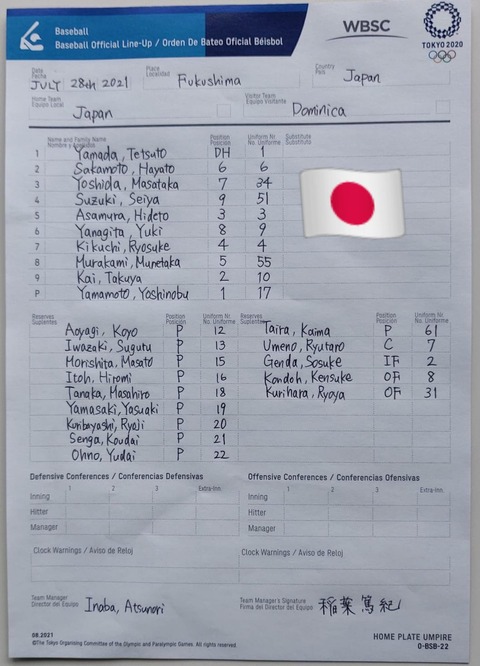 Baseball
Baseball Official Line-Up / Orden De Bateo Oficial Béisbol
WBSC
TOKYO 2020
Date
Fecha
JULY 28th 2021
Place
Localidad
Fukushima
Country
País
Japan
Home Team
Equipo Local
Japan
Visitor Team
Equipo Visitante
Dominica
Name and Family Name
Nombre y Apellidos
Position
Posición
Uniform Nr
No. Uniforme
Substitute
Substituto
1 Yamada, Tetsuto DH 1
2 Sakamoto, Hayato 6 6
3 Yoshida, Masataka 7 34
4 Suzuki, Seiya 9 51
5 Asamura, Hideto 3 3
6 Yanagita, Yuki 8 9
7 Kikuchi, Ryosuke 4 4
8 Murakami, Munetaka 5 55
9 Kai, Takuya 2 10
P Yamamoto, Yoshinobu 1 17
Reserves
Suplentes
Position
Posición
Uniform Nr
No. Uniforme
Reserves
Suplentes
Position
Posición
Uniform Nr
No. Uniforme
Aoyagi, Koyo P 12 Taira, Kaima P 61
Iwazaki, Suguru P 13 Umeno, Ryutaro C 7
Morishita, Masato P 15 Genda, Sosuke IF 2
Itoh, Hiromi P 16 Kondoh, Kensuke OF 8
Tanaka, Masahiro P 18 Kurihara, Ryoya OF 31
Yamasaki, Yasuaki P 19
Kuribayashi, Ryoji P 20
Senga, Koudai P 21
Ohno, Yudai P 22
Defensive Conferences / Conferencias Defensivas
Offensive Conferences / Conferencias Ofensivas
1 2 3 Extra-Inn. 1 2 3 Extra-Inn.
Inning Inning
Hitter Hitter
Manager Manager
Clock Warnings / Aviso de Reloj Clock Warnings / Aviso de Reloj
Team Manager
Director del Equipo
Inaba, Atsunori
Team Manager's Signature
Firma del Director del Equipo
稲葉 篤紀
08.2021
©The Tokyo Organising Committee of the Olympic and Paralympic Games. All rights reserved.
HOME PLATE UMPIRE
O-BSB-22